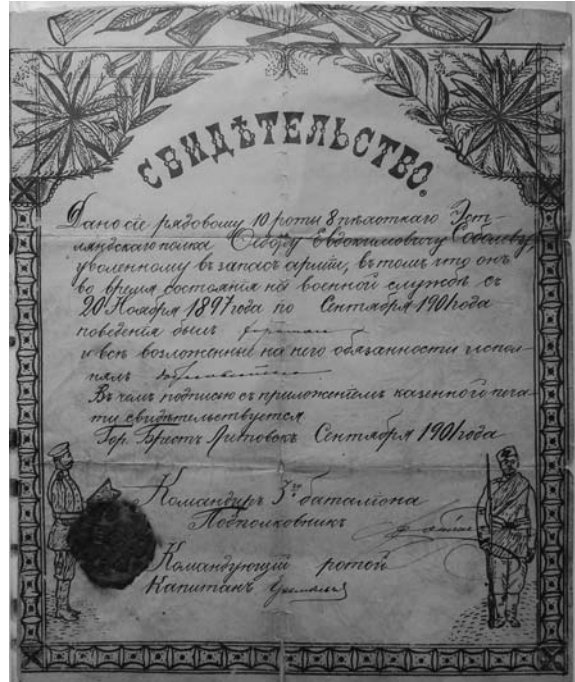 СВИДѢТЕЛЬСТВО.
Дано сіе рядовому 10 роты 8 пѣхотнаго Эст-
ляндскаго полка Ѳедору Евдокимовичу Соболеву,
уволенному въ запасъ арміи, въ томъ что онъ
во время состоянія на военной службѣ съ
20 Ноября 1897 года по Сентября 1901 года
поведенія былъ
и всѣ возложенные на него обязанности испол-
нялъ
Въ чемъ подписью съ приложеніемъ казенного печа-
ти свидѣтельствуется
Гор. Брестъ Литовскъ Сентября 1901 года
Командиръ 3го баталіона
Подполковникъ
Командующій ротой
Капитанъ